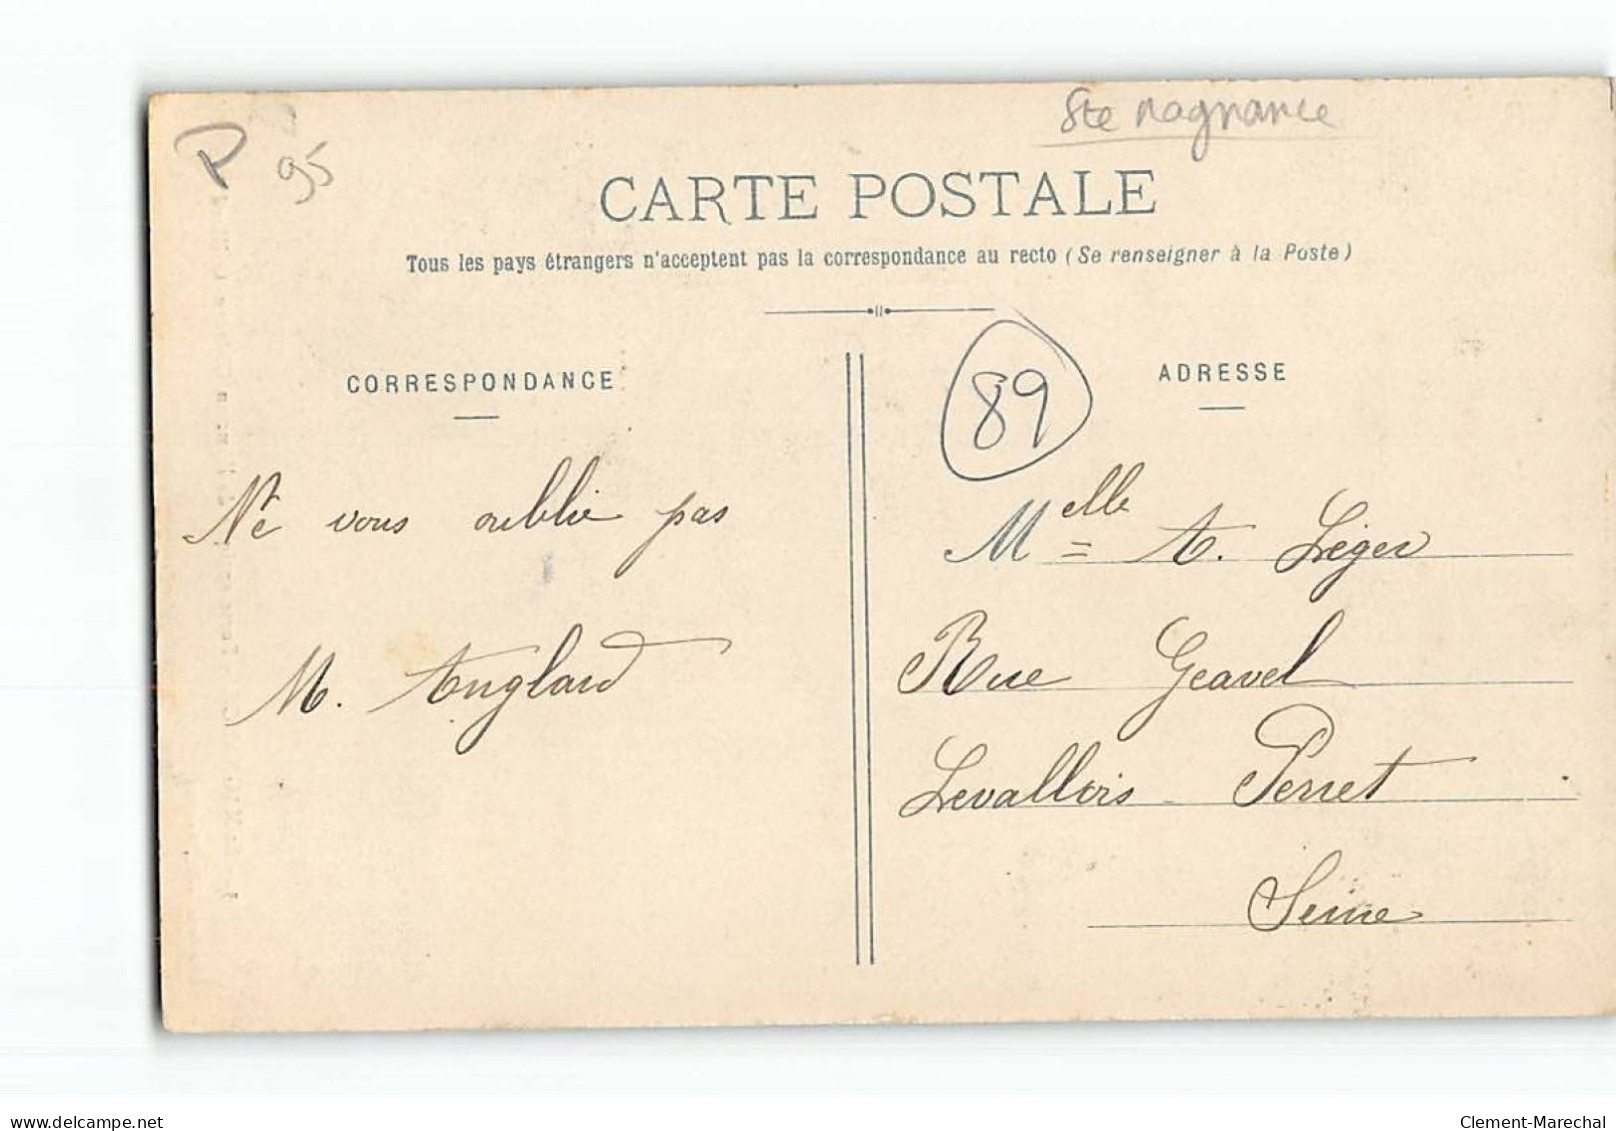 Ste Magnance
P 95
CARTE POSTALE
Tous les pays étrangers n'acceptent pas la correspondance au recto (Se renseigner à la Poste)
CORRESPONDANCE
Ne vous oublie pas
M. Anglard
89
ADRESSE
Melle A. Léger
Rue Geavel
Levallois Perret
Seine
delcampe.net
Clement-Marechal